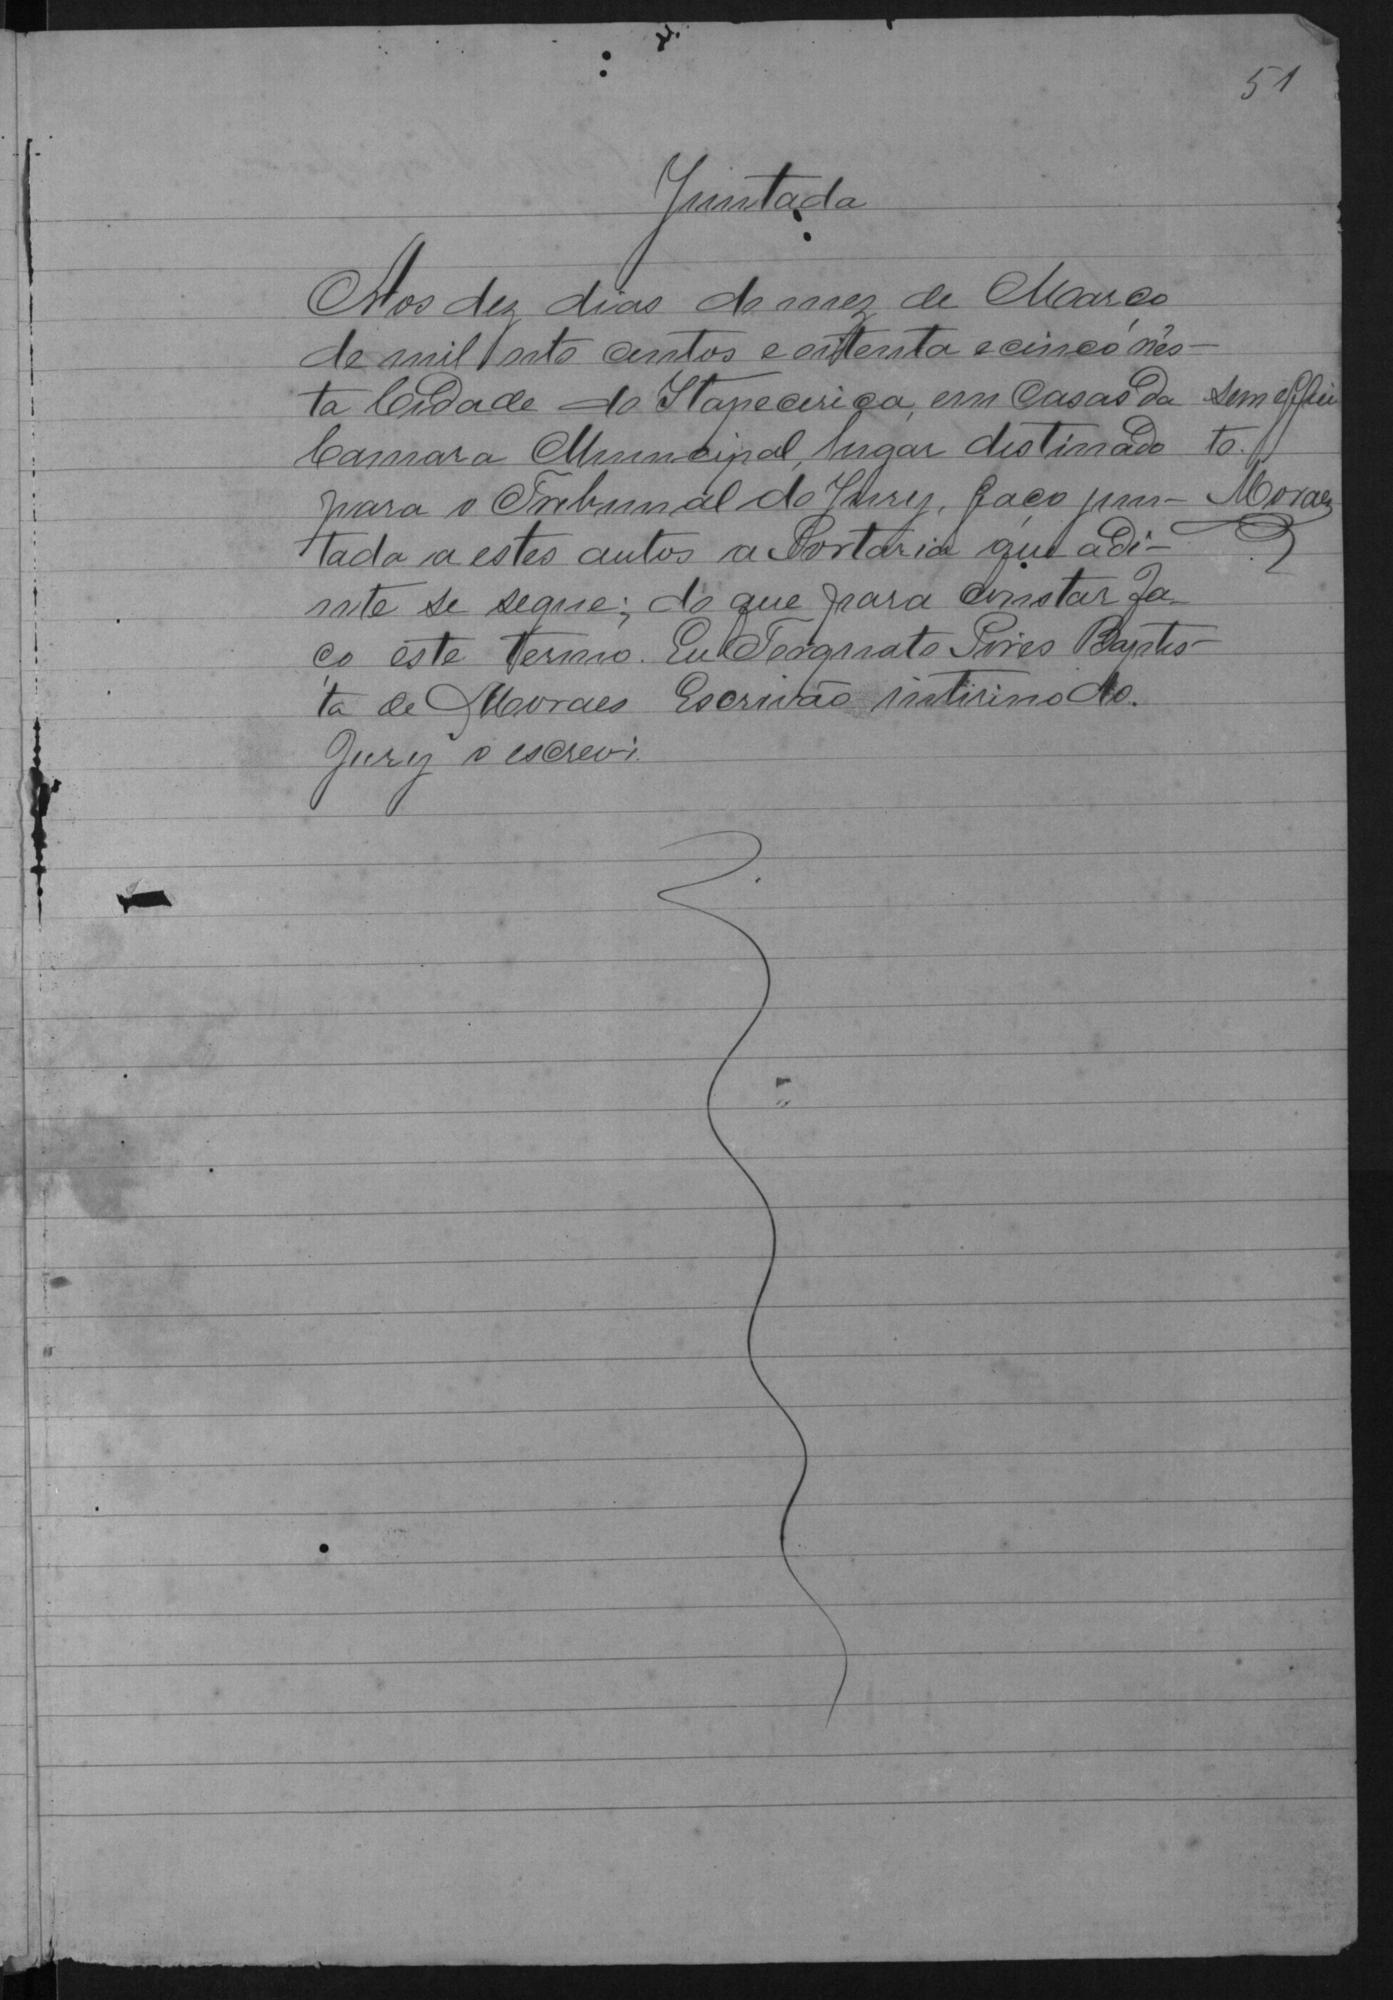 51
Juntada
Aos dez dias do mez de Março
de mil oito centos e oitenta e cinco nes-
ta Cidade do Itapecerica, em Casas da
Camara Municipal, lugar destinado
para o Tribunal do Jury, faço jun-
tada a estes autos a Portaria que adi-
nte se segue; do que para constar fa-
ço este termo. Eu Torquato Pires Baptis-
ta de Moraes Escrivão intirino do
Jury o escrevi.
Sem effei
to.
Moraes